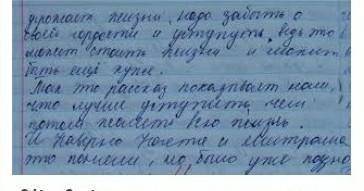 угрожает жизни, надо забыть о
своей гордости и уступить, ведь это
может стоить жизни и может
быть ещё хуже.
Мая то рассказ показывает нам,
что лучше уступить чем
потом жалеть всю жизнь.
И наверно Костя и
это поняли, но было уже поздно